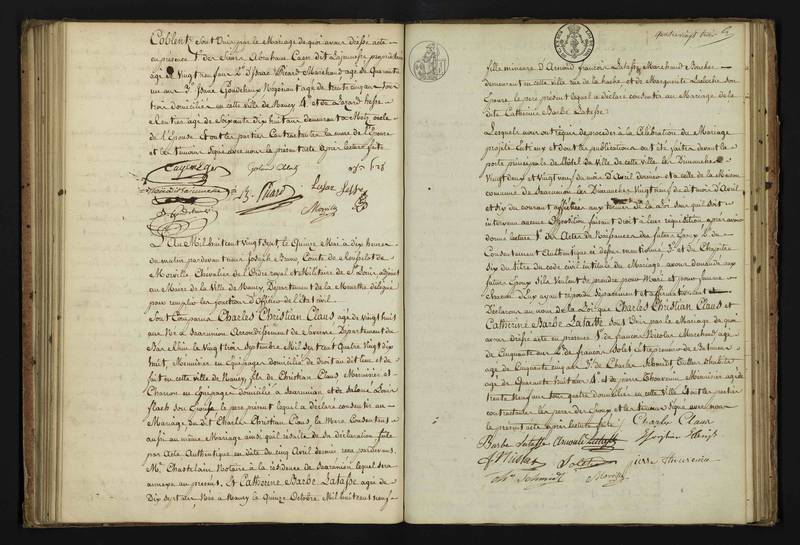 Coblentz sont Unis par le Mariage de quoi avons dressé acte
en présence 1.° de Sieur Abraham Caen dit Lajeunesse propriétaire
agé de Vingt neuf ans 2.° d'Isaac Picard Marchand agé de Quarante
un ans 3.° Isaac Goudchaux Nogenant agé de trente cinq ans tous
trois domiciliés en cette Ville de Nancy 4.° et de Lazard hesse
Rentier agé de Soixante dix huit ans demeurant à Metz oncle
de l'Epouse et ont les parties Contractantes la mere de l'Epouse
et les témoins Signé avec nous le présent acte après lecture faite
B. Picard
Lazar hesse
Morville
L'An Mil huit cent Vingt Sept le Quinze Mai à dix heures
du matin par devant nous Joseph Comte de
Morville Chevalier de l'Ordre royal et Militaire de S.t Louis, adjoint
au Maire de la Ville de Nancy, Département de la Meurthe délégué
pour remplir les fonctions d'Officier de l'état Civil.
Sont Comparus Charles Christian Claus agé de Vingt huit
ans Né à Saarunion Arrondissement de Saverne Département du
Bas Rhin le Vingt trois Septembre Mil Sept cent Quatre Vingt dix
huit, Menuisier en Equipages domicilié de droit audit lieu et de
fait en cette ville de Nancy, fils de Christian Claus Menuisier et
Charron en équipages domicilié à Saarunion, et de Salomé
son Epouse, le pere présent lequel a déclaré consentir au
Mariage dudit Charles Christian Claus, la Mere Consentant
aussi au même Mariage ainsi qu'il résulte de sa déclaration faite
par Acte Authentique en date du cinq Avril dernier reçu par devant
M.e Chastelain Notaire à la résidence de Saarunion lequel sera
annexé au présent. Et Catherine Barbe Lataſse agée de
Dix Sept ans Née à Nancy le Quinze Octobre Mil huit cent neuf
fille mineure d'Arnould François Lataſse Marchand Boucher
demeurant en cette Ville rue de la hache et de Marguerite son
Epouse, le pere présent lequel a déclaré consentir au Mariage de la
dite Catherine Barbe Lataſse.
Lesquels nous ont requis de procéder à la Célébration du Mariage
projeté entr'eux et dont les publications ont été faites devant la
porte principale de l'Hôtel de Ville de cette ville les Dimanches
Vingt deux et Vingt neuf du mois d'Avril dernier et à celle de la Maison
commune de Saarunion les Dimanches Vingt neuf dudit mois d'Avril
et Six du courant affichées aux termes de la Loi sans qu'il soit
intervenu aucune Opposition faisant droit à leur réquisition, après avoir
donné lecture 1.° des Actes de Naissances des futurs Epoux 2.° du
Consentement Authentique ci dessus mentionné 3.° et du Chapitre
Six du titre du code civil intitulé du Mariage, avons demandé aux
futurs Epoux s'ils veulent se prendre pour Mari et pour femme
chacun d'eux ayant répondu séparément et affirmativement
Déclarons au nom de la Loi que Charles Christian Claus et
Catherine Barbe Lataſse sont Unis par le Mariage de quoi
avons dressé acte en présence 1.° de François Nicolas Marchand agé
de Cinquante ans 2.° de François Bolet Entrepreneur de Batimens
agé de Cinquante cinq ans 3.° de Charles Schmidt Tailleur d'habits
agé de Quarante huit ans 4.° et de pierre Thouvenin Menuisier agé de
trente Neuf ans tous quatre domiciliés en cette Ville et ont les parties
contractantes les peres des Epoux et les témoins Signé avec nous
le présent acte après lecture faite
Charles Claus
Barbe Lataſse Arnould Lataſse
Christian Claus
pierre thouvenin
Ch. Schmidt Morville